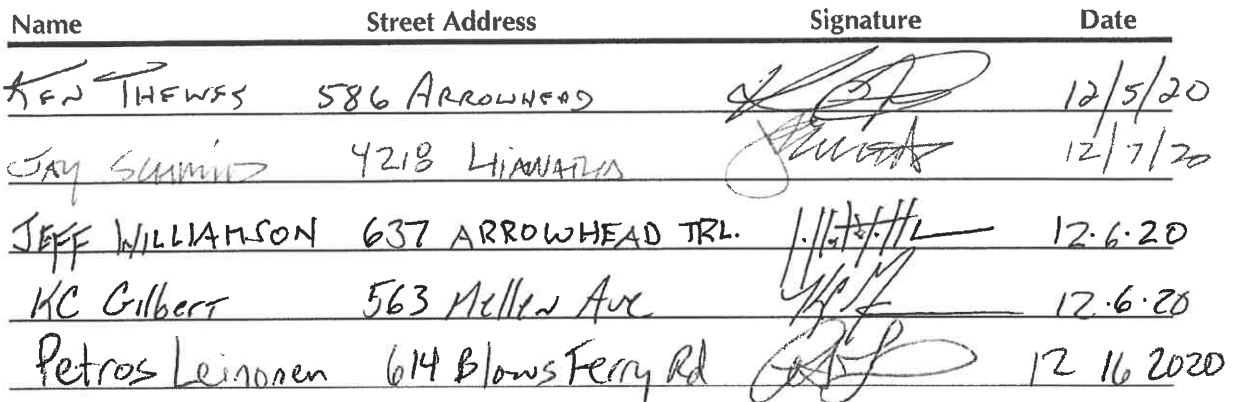 Name Street Address Signature Date
KEN THEWES 586 ARROWHEAD 12/5/20
JAY SCHMID 4218 HIAWATHA 12/7/20
JEFF WILLIAMSON 637 ARROWHEAD TRL. 12.6.20
KC Gilbert 563 Mellen Ave 12.6.20
Petros Leinonen 614 Blows Ferry Rd 12 16 2020